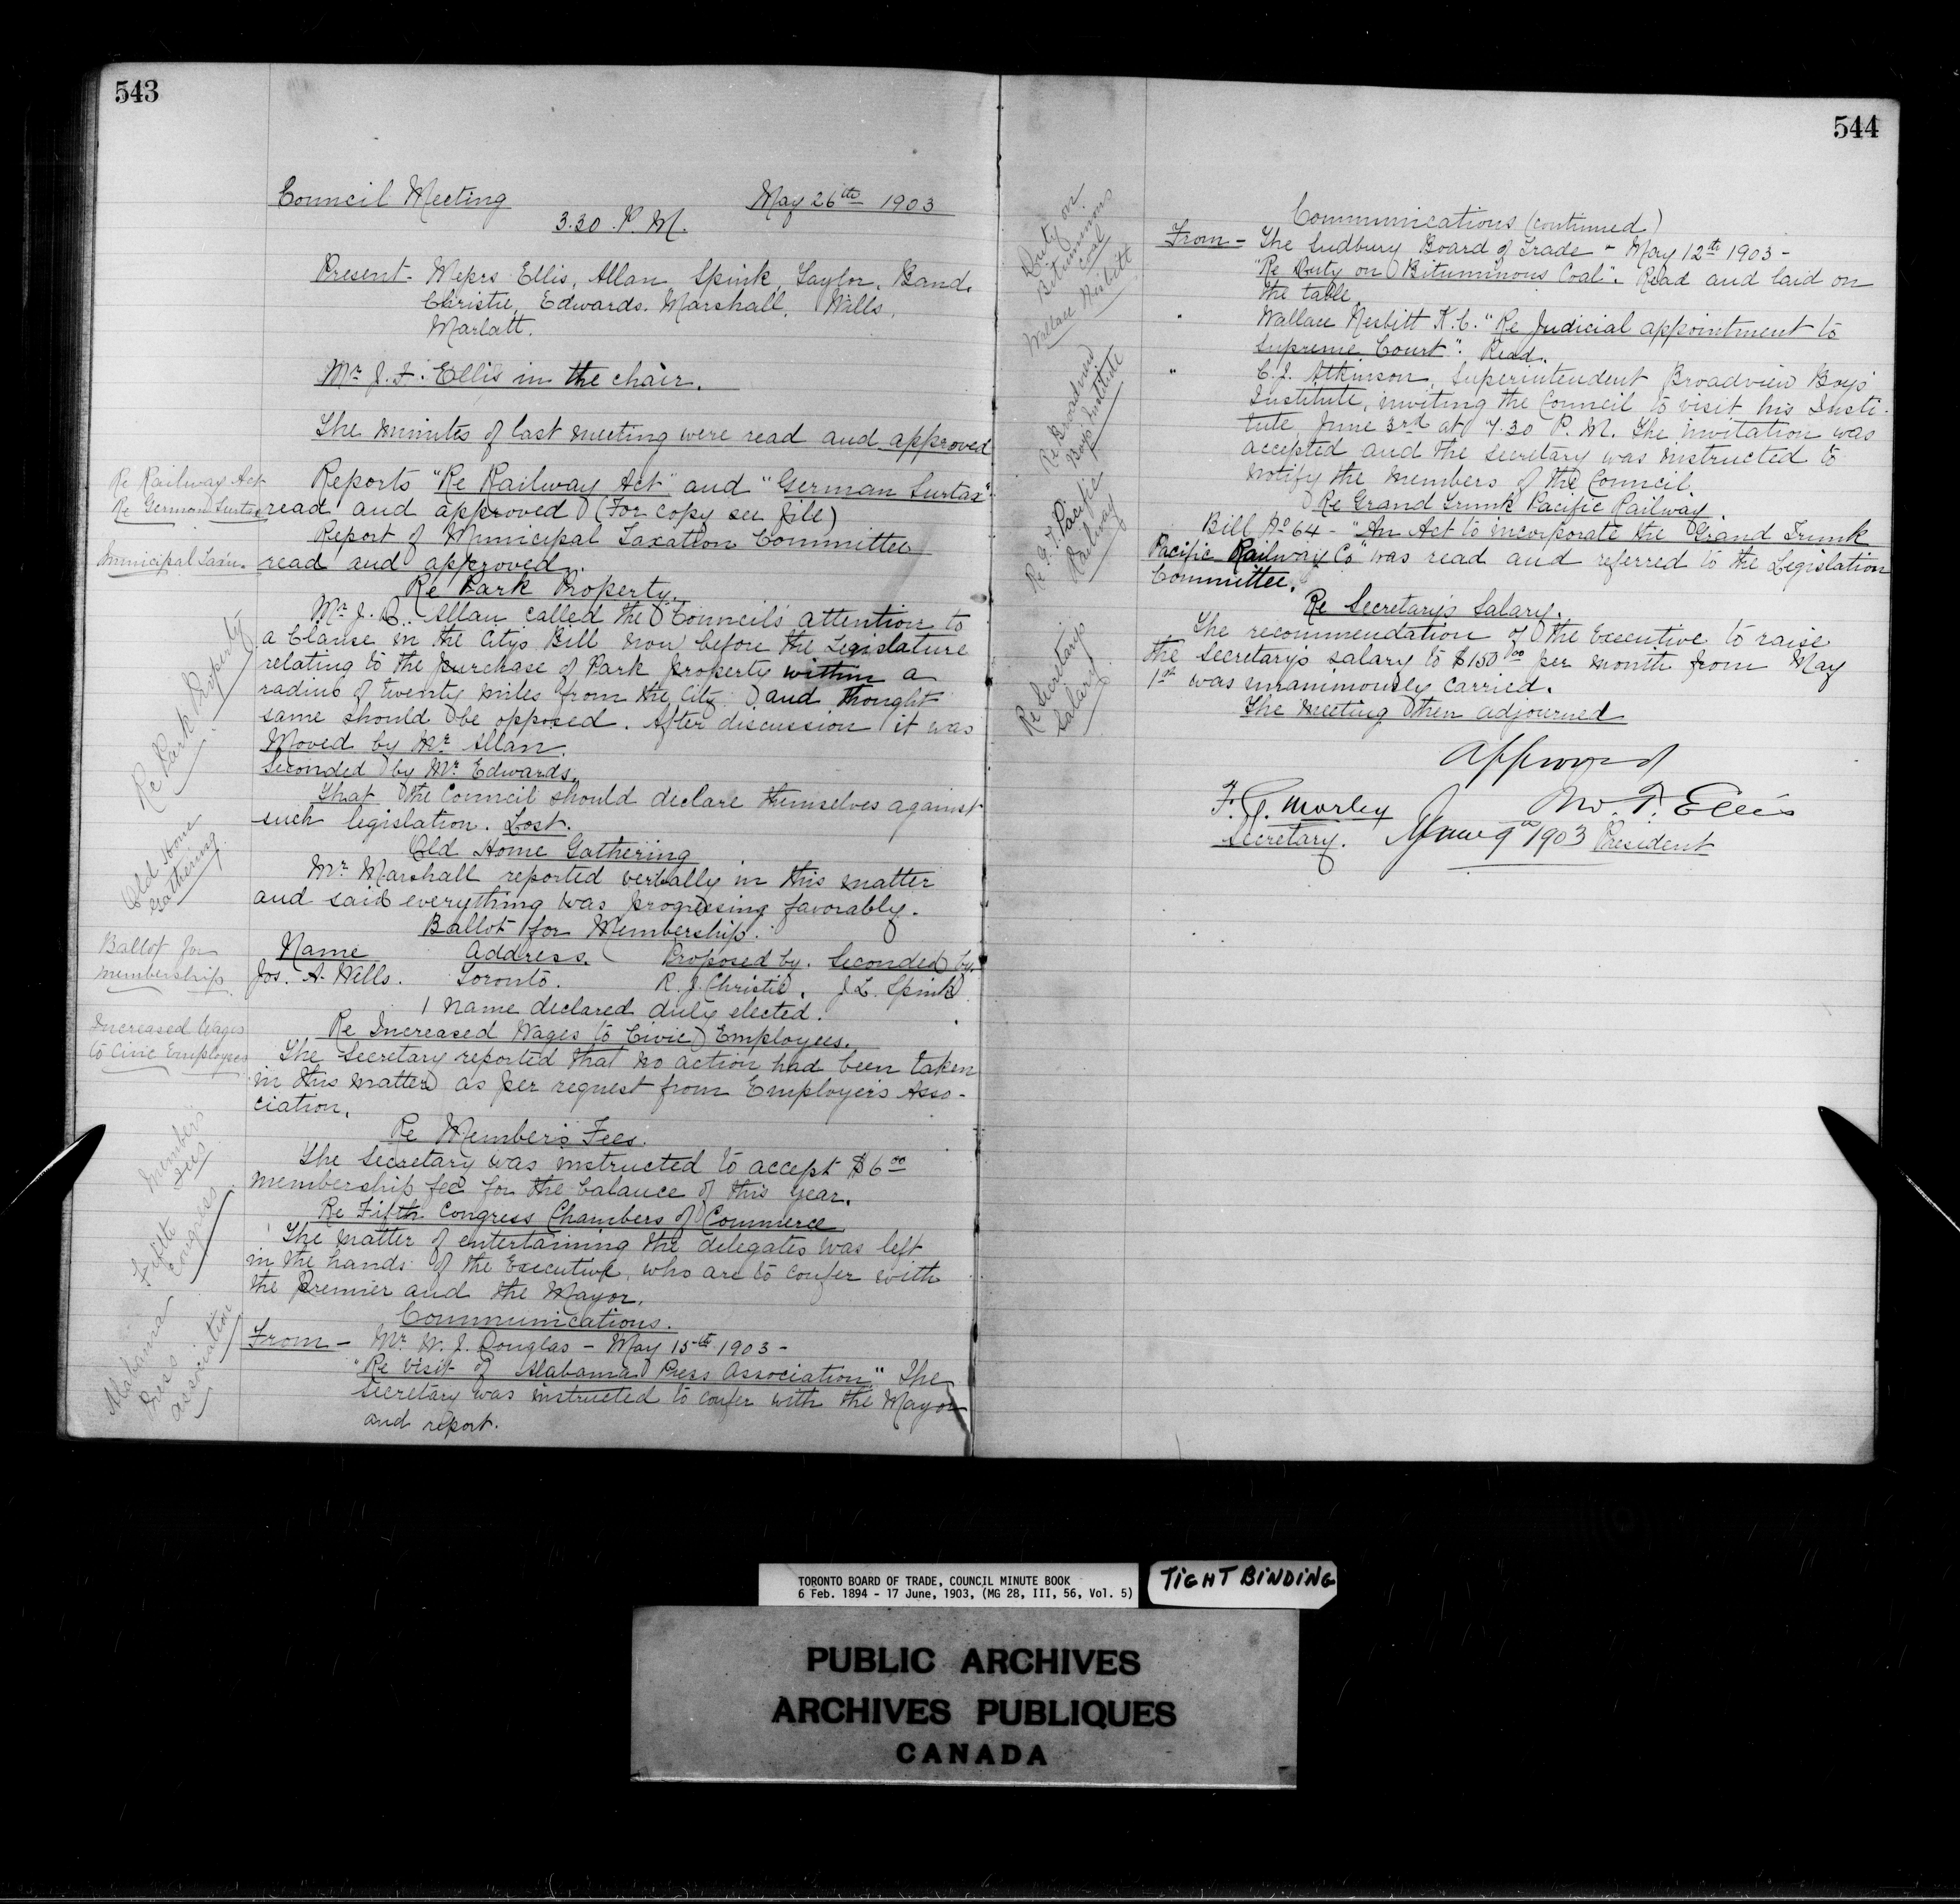 543
Council Meeting May 26th 1903
3.30 P.M.
Present - Messrs Ellis, Allan, Spink, Taylor, Band,
Christie, Edwards, Marshall, Wills,
Marlatt.
Mr J. F. Ellis in the chair.
The minutes of last meeting were read and approved
Re Railway Act
Re German Surtax
Reports "Re Railway Act" and "German Surtax"
read and approved (For copy see file)
Report of Municipal Taxation Committee
Municipal Tax'n.
read and approved.
Re Park Property.
Re Park Property
Mr J. D. Allan called the Council's attention to
a Clause in the City's Bill now before the Legislature
relating to the purchase of Park property within a
radius of twenty miles from the City and thought
same should be opposed. After discussion it was
Moved by Mr Allan.
Seconded by Mr Edwards.
That the Council should declare themselves against
such legislation. Lost.
Old Home Gathering
Old Home
Gathering
Mr Marshall reported verbally in this matter
and said everything was progressing favorably.
Ballot for Membership.
Ballot for
membership
Name Address. Proposed by. Seconded by.
Jos. A. Wells. Toronto. R. J. Christie. J L. Spink
1 name declared duly elected.
Increased Wages
to Civic Employees
Re Increased Wages to Civic Employees.
The Secretary reported that no action had been taken
in this matter as per request from Employer's Asso-
ciation.
Re Member's Fees.
Member's
Fees
The Secretary was instructed to accept $6.00
membership fee for the balance of this year.
Re Fifth Congress Chambers of Commerce
Fifth
Congress
The matter of entertaining the delegates was left
in the hands of the Executive, who are to confer with
the Premier and the Mayor.
Communications.
Alabama
Press
Association
From - Mr W. J. Douglas - May 15th 1903 -
"Re visit of Alabama Press Association." The
Secretary was instructed to confer with the Mayor
and report.
544
Communications (continued)
Duty on
Bituminous
coal
From - The Sudbury Board of Trade - May 12th 1903 -
"Re Duty on Bituminous Coal". Read and laid on
the table.
Wallace Nesbitt
" Wallace Nesbitt K.C. "Re Judicial appointment to
Supreme Court". Read.
Re Broadview
Boys Institute
" C. J. Atkinson, Superintendent Broadview Boys'
Institute, inviting the Council to visit his Insti-
tute June 3rd at 7.30 P.M. The invitation was
accepted and the secretary was instructed to
notify the members of the Council.
Re Grand Trunk Pacific Railway.
Re G.T. Pacific
Railway
Bill No 64 - "An Act to incorporate the Grand Trunk
Pacific Railway Co" was read and referred to the Legislation
Committee.
Re Secretary's Salary.
Re Secretarys
Salary
The recommendation of the Executive to raise
the Secretary's salary to $150.00 per month from May
1st was unanimously carried.
The meeting then adjourned
Approved
F. G. Morley Jno. F. Ellis
Secretary. June 9th 1903 President
TORONTO BOARD OF TRADE, COUNCIL MINUTE BOOK
6 Feb. 1894 - 17 June, 1903, (MG 28, III, 56, Vol. 5)
TIGHT BINDING
PUBLIC ARCHIVES
ARCHIVES PUBLIQUES
CANADA